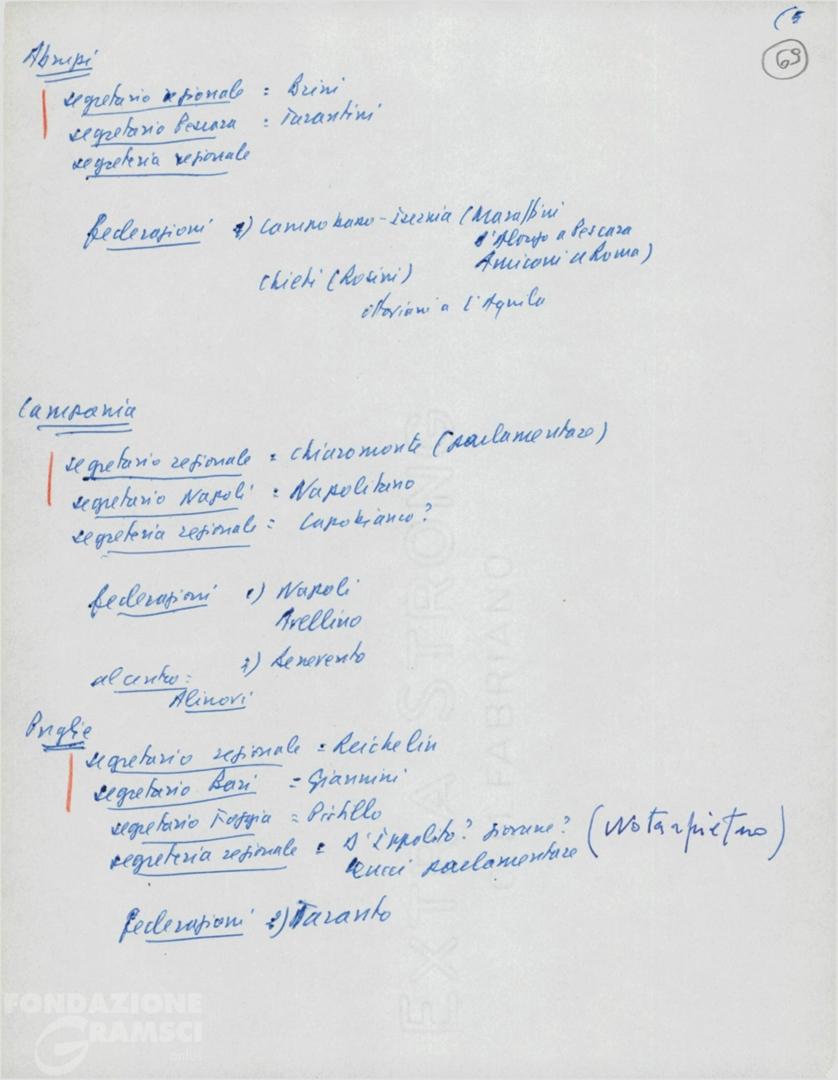 (5
69
Abruzzi
segretario regionale = Brini
segretario Pescara = Tarantini
segreteria regionale
federazioni 1) Campobasso-Isernia (Maraffini
D'Alonzo a Pescara
Amiconi a Roma)
Chieti (Rosini)
Ottaviani a L'Aquila
Campania
segretario regionale = Chiaromonte (parlamentare)
segretario Napoli = Napolitano
segreteria regionale = Capobianco?
federazioni 1) Napoli
Avellino
2) Benevento
al centro:
Alinovi
Puglie
segretario regionale = Reichelin
segretario Bari = Giannini
segretario Foggia = Pistillo
segreteria regionale = D'Ippolito? giovane? (Notarpietro)
parlamentare
federazioni 2) Taranto
EXTRA STRONG
FABRIANO
FONDAZIONE
GRAMSCI
onlus